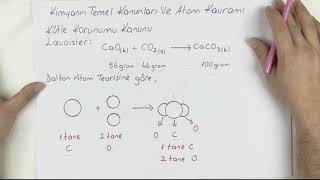 Kimyanın Temel Kanunları Ve Atom Kavramı
Kütle Korunumu Kanunu
Lavoisier:
CaO(k) + CO2(g) → CaCO3(k)
56gram 44gram 100gram
Dalton Atom Teorisine göre,
+ →
O C O
1 tane 2 tane 1 tane C
C O 2 tane O